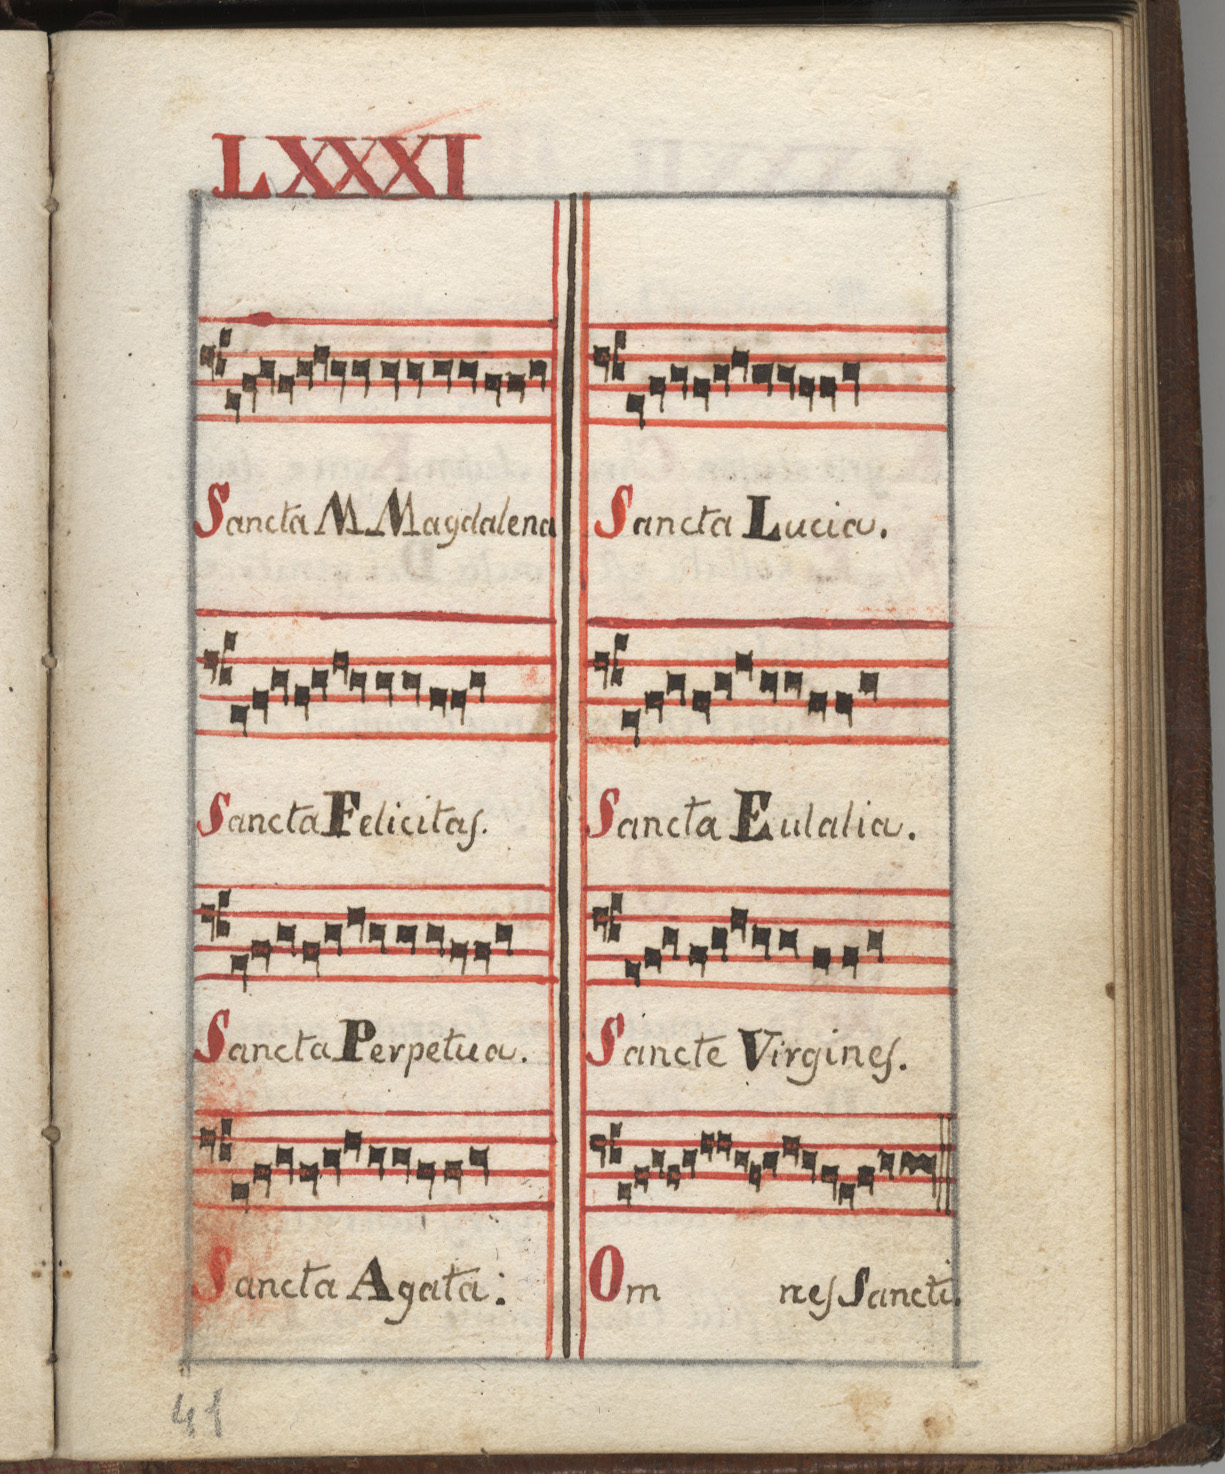 LXXXI
Sancta M. Magdalena
Sancta Felicitas.
Sancta Perpetua.
Sancta Agata:
Sancta Lucia.
Sancta Eulalia.
Sancte Virgines.
Om nes Sancti.
41